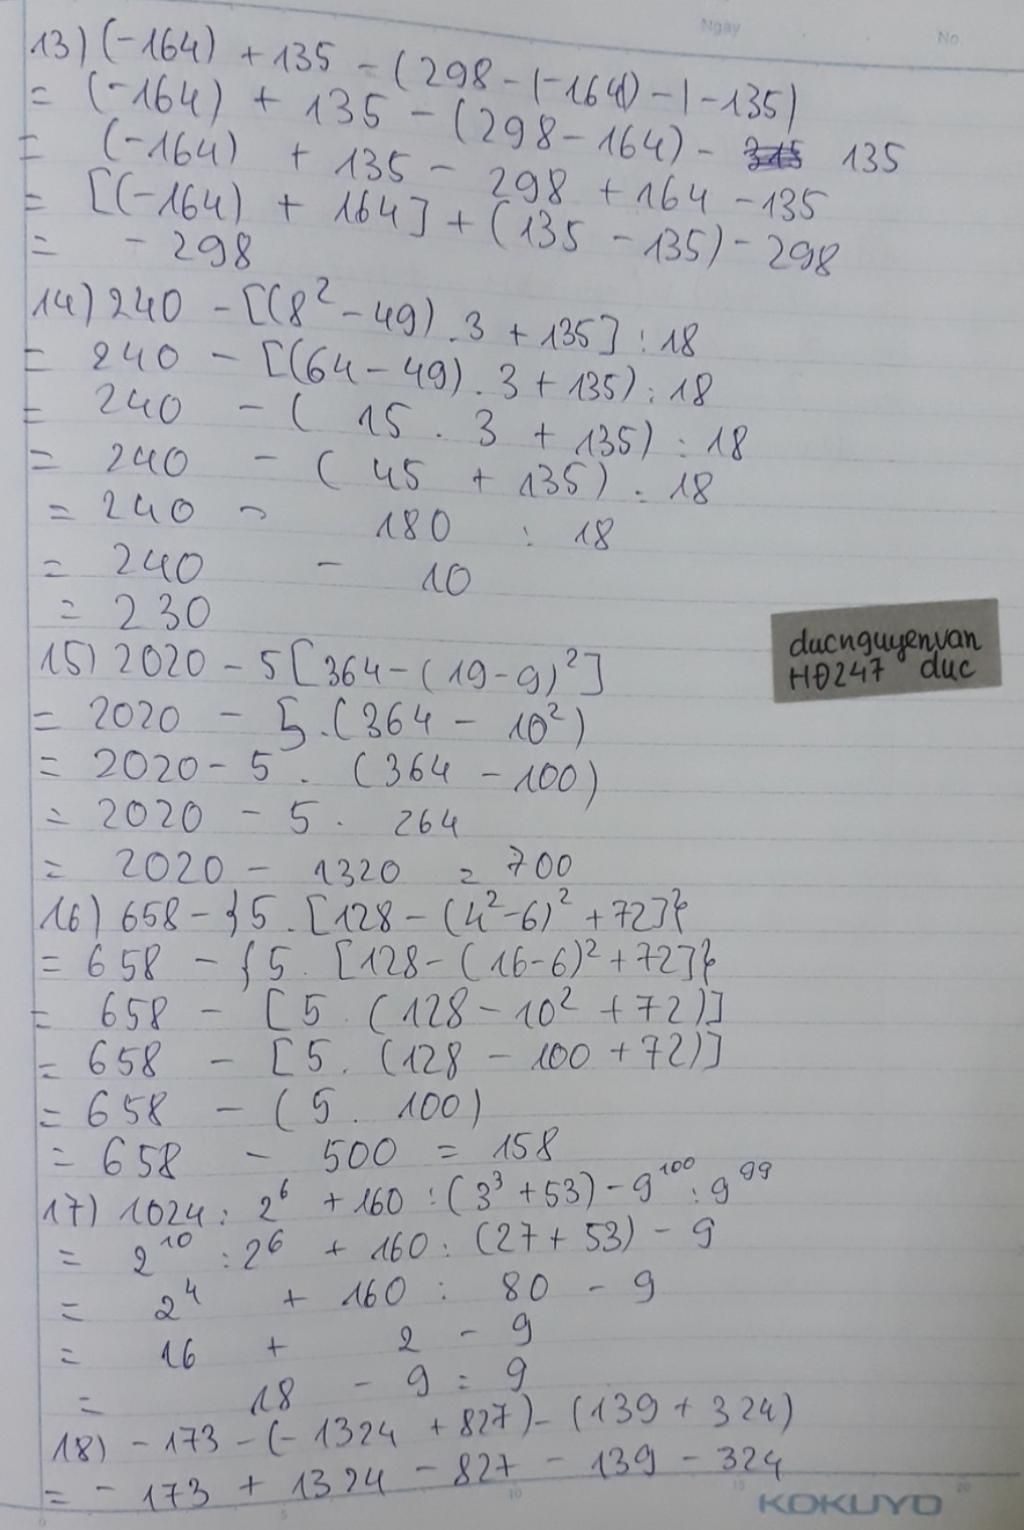 Ngày No.
13) (-164) + 135 - (298 - |-164|) - |-135|
= (-164) + 135 - (298 - 164) - 135
= (-164) + 135 - 298 + 164 - 135
= [(-164) + 164] + (135 - 135) - 298
= - 298
14) 240 - [(8² - 49) . 3 + 135] : 18
= 240 - [(64 - 49) . 3 + 135) : 18
= 240 - ( 15 . 3 + 135) : 18
= 240 - ( 45 + 135) : 18
= 240 - 180 : 18
= 240 - 10
= 230
ducnguyenvan
HĐ247 duc
15) 2020 - 5[364 - (19 - 9)²]
= 2020 - 5 . (364 - 10²)
= 2020 - 5 . (364 - 100)
= 2020 - 5 . 264
= 2020 - 1320 = 700
16) 658 - {5 . [128 - (4² - 6)² + 72]}
= 658 - {5 . [128 - (16 - 6)² + 72]}
= 658 - [5 . (128 - 10² + 72)]
= 658 - [5 . (128 - 100 + 72)]
= 658 - (5 . 100)
= 658 - 500 = 158
17) 1024 : 2⁶ + 160 : (3³ + 53) - 9¹⁰⁰ : 9⁹⁹
= 2¹⁰ : 2⁶ + 160 : (27 + 53) - 9
= 2⁴ + 160 : 80 - 9
= 16 + 2 - 9
= 18 - 9 = 9
18) - 173 - (- 1324 + 827) - (139 + 324)
= - 173 + 1324 - 827 - 139 - 324
KOKUYO
0 5 10 15 20